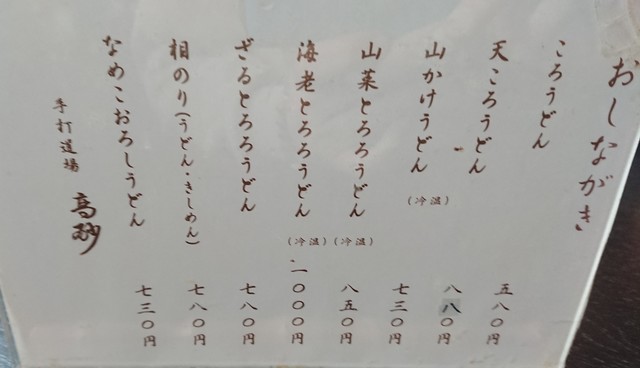 おしながき
ころうどん 五八〇円
天ころうどん 八八〇円
山かけうどん(冷温) 七三〇円
山菜とろろうどん(冷温) 八五〇円
海老とろろうどん(冷温) 一〇〇〇円
ざるとろろうどん 七八〇円
相のり(うどん・きしめん) 七八〇円
なめこおろしうどん 七三〇円
手打道場 高砂